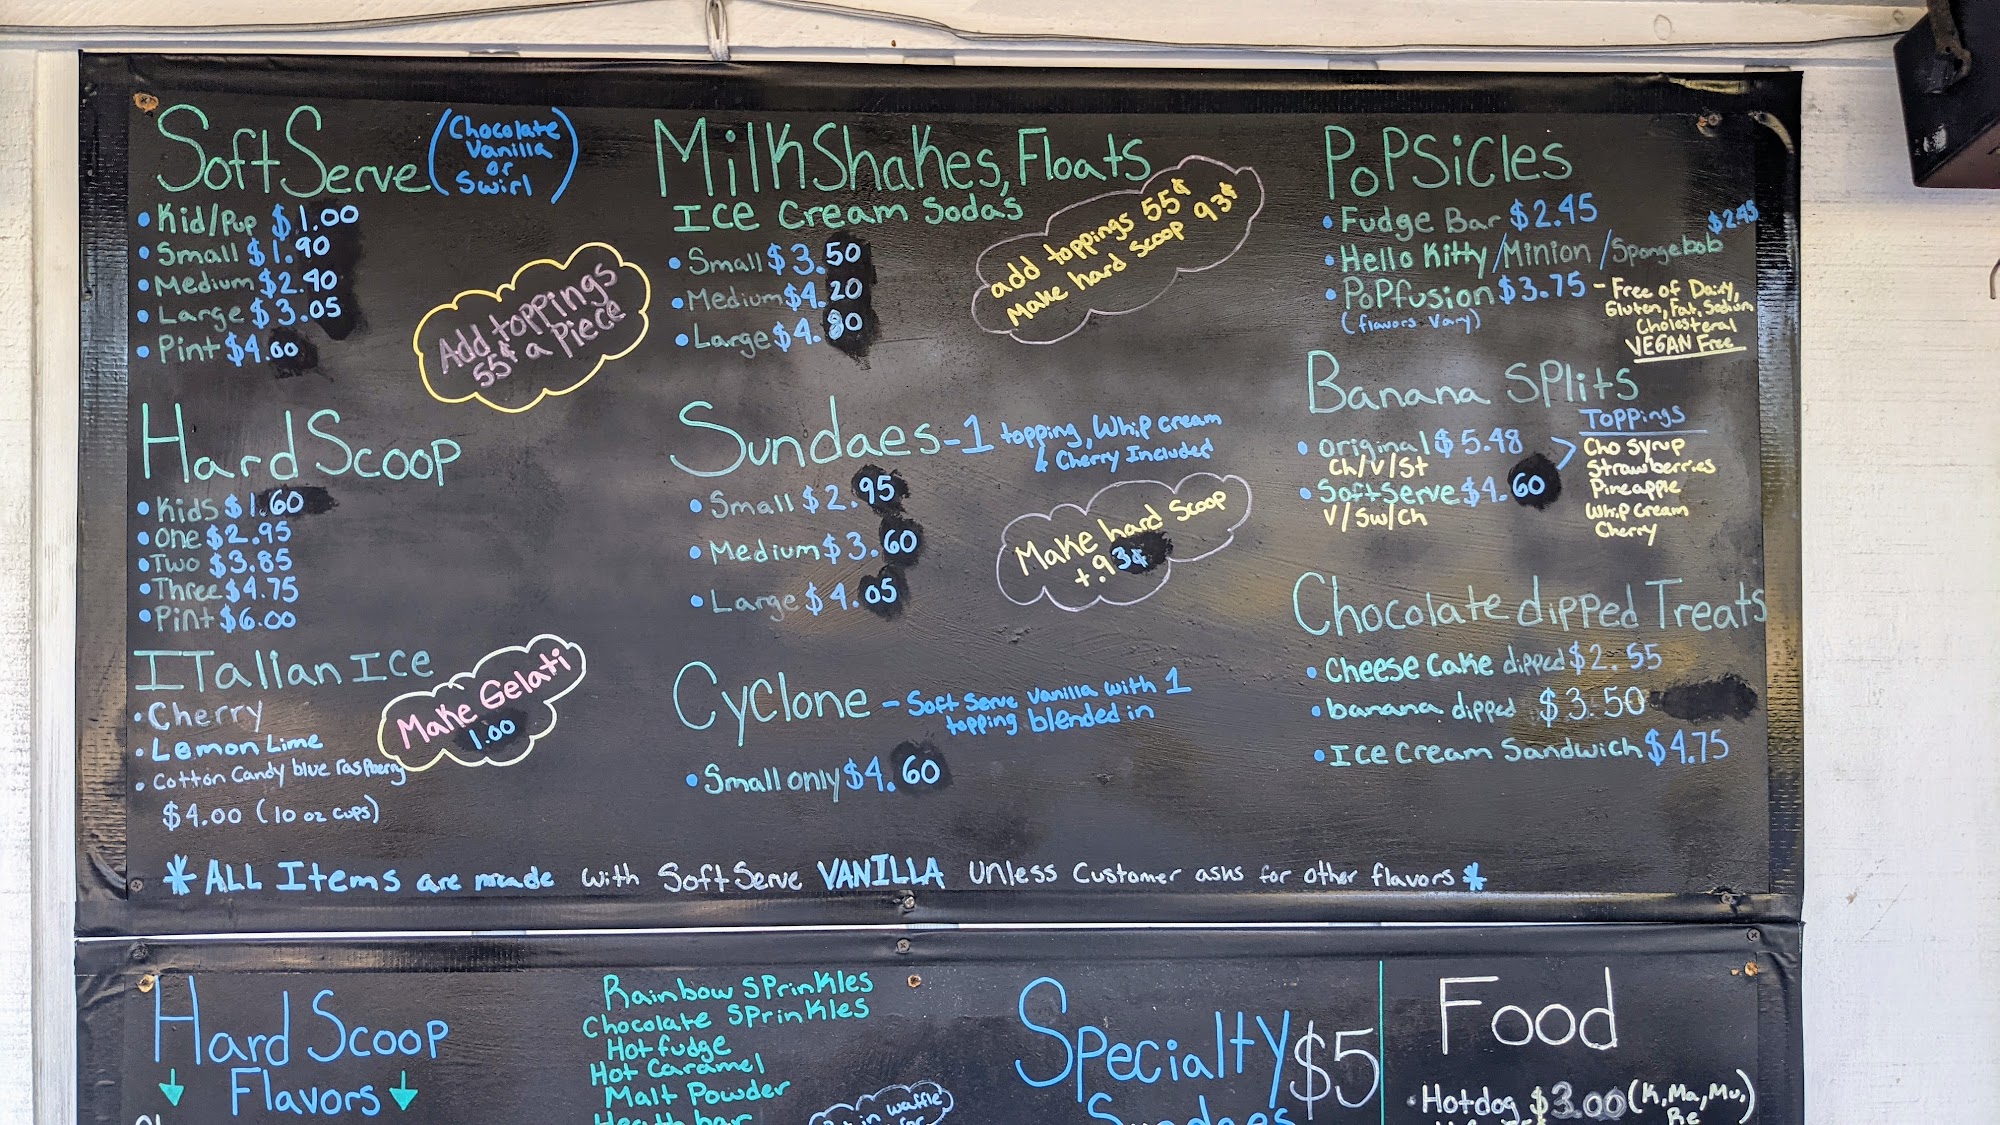 Soft Serve (Chocolate
Vanilla
or
Swirl)
• Kid/Pup $1.00
• Small $1.90
• Medium $2.40
• Large $3.05
• Pint $4.00
Add toppings
55¢ a Piece
Hard Scoop
• Kids $1.60
• One $2.95
• Two $3.85
• Three $4.75
• Pint $6.00
Italian Ice
• Cherry
• Lemon Lime
• Cotton Candy blue raspberry
$4.00 (10 oz cups)
Make Gelati
1.00
MilkShakes, Floats
Ice Cream Sodas
• Small $3.50
• Medium $4.20
• Large $4.80
add toppings 55¢
Make hard Scoop 93¢
Sundaes - 1 topping, Whip cream
& Cherry Included
• Small $2.95
• Medium $3.60
• Large $4.05
Make hard Scoop
+.93¢
Cyclone - Soft Serve Vanilla with 1
topping blended in
• Small only $4.60
PoPSicles
• Fudge Bar $2.45
• Hello Kitty/Minion/Spongebob $2.45
• PoPfusion $3.75 - Free of Dairy,
(flavors Vary)
Gluten, Fat, Sodium
Cholesteral
VEGAN Free
Banana Splits
• Original $5.48
Ch/V/St
• Soft Serve $4.60
V/Sw/Ch
Toppings
Cho Syrup
Strawberries
Pineapple
Whip Cream
Cherry
Chocolate dipped Treats
• Cheese Cake dipped $2.55
• banana dipped $3.50
• Ice Cream Sandwich $4.75
* ALL Items are made with Soft Serve VANILLA Unless Customer asks for other flavors *
Hard Scoop
Flavors
Rainbow Sprinkles
Chocolate Sprinkles
Hot fudge
Hot Caramel
Malt Powder
Heath bar
in waffle
Specialty $5
Sundaes
Food
• Hotdog $3.00 (K, Ma, Mu,
Re)